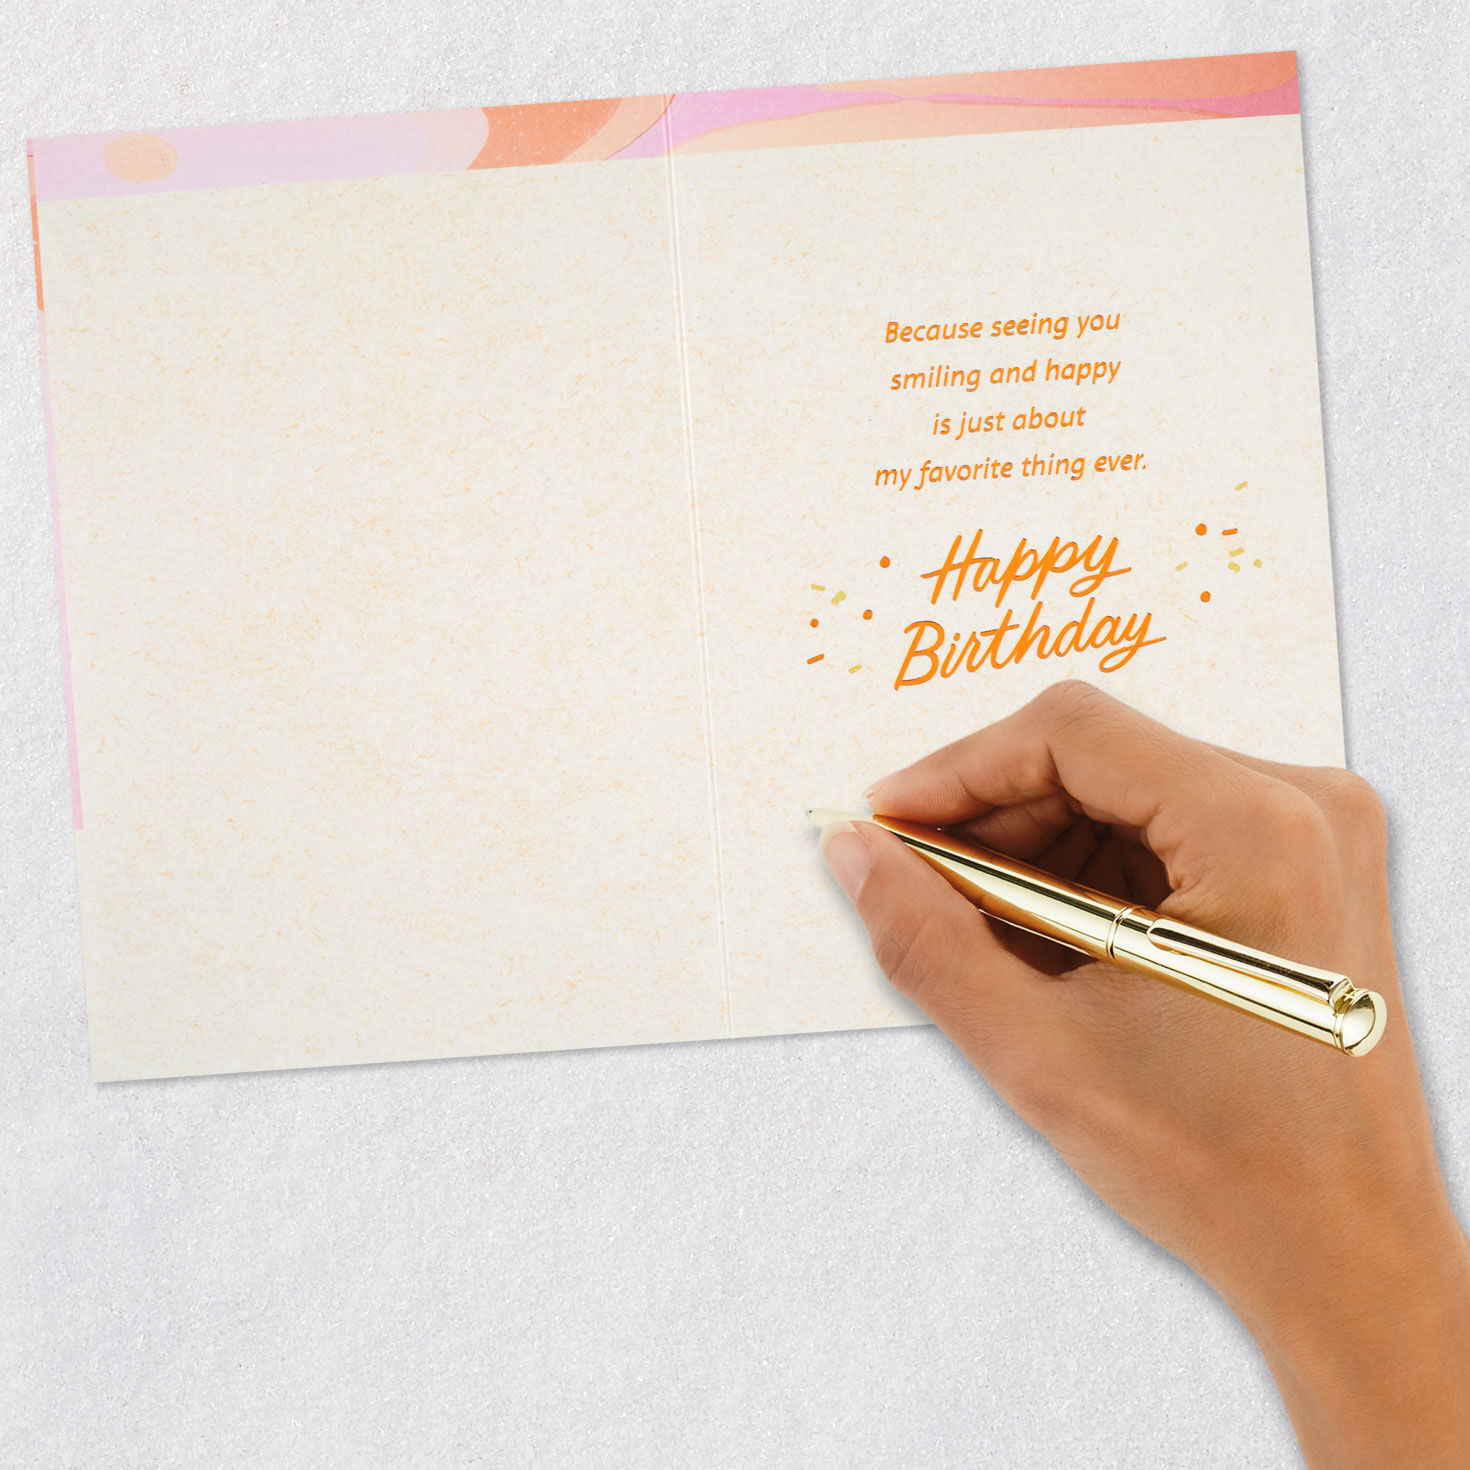 Because seeing you
smiling and happy
is just about
my favorite thing ever.
Happy
Birthday